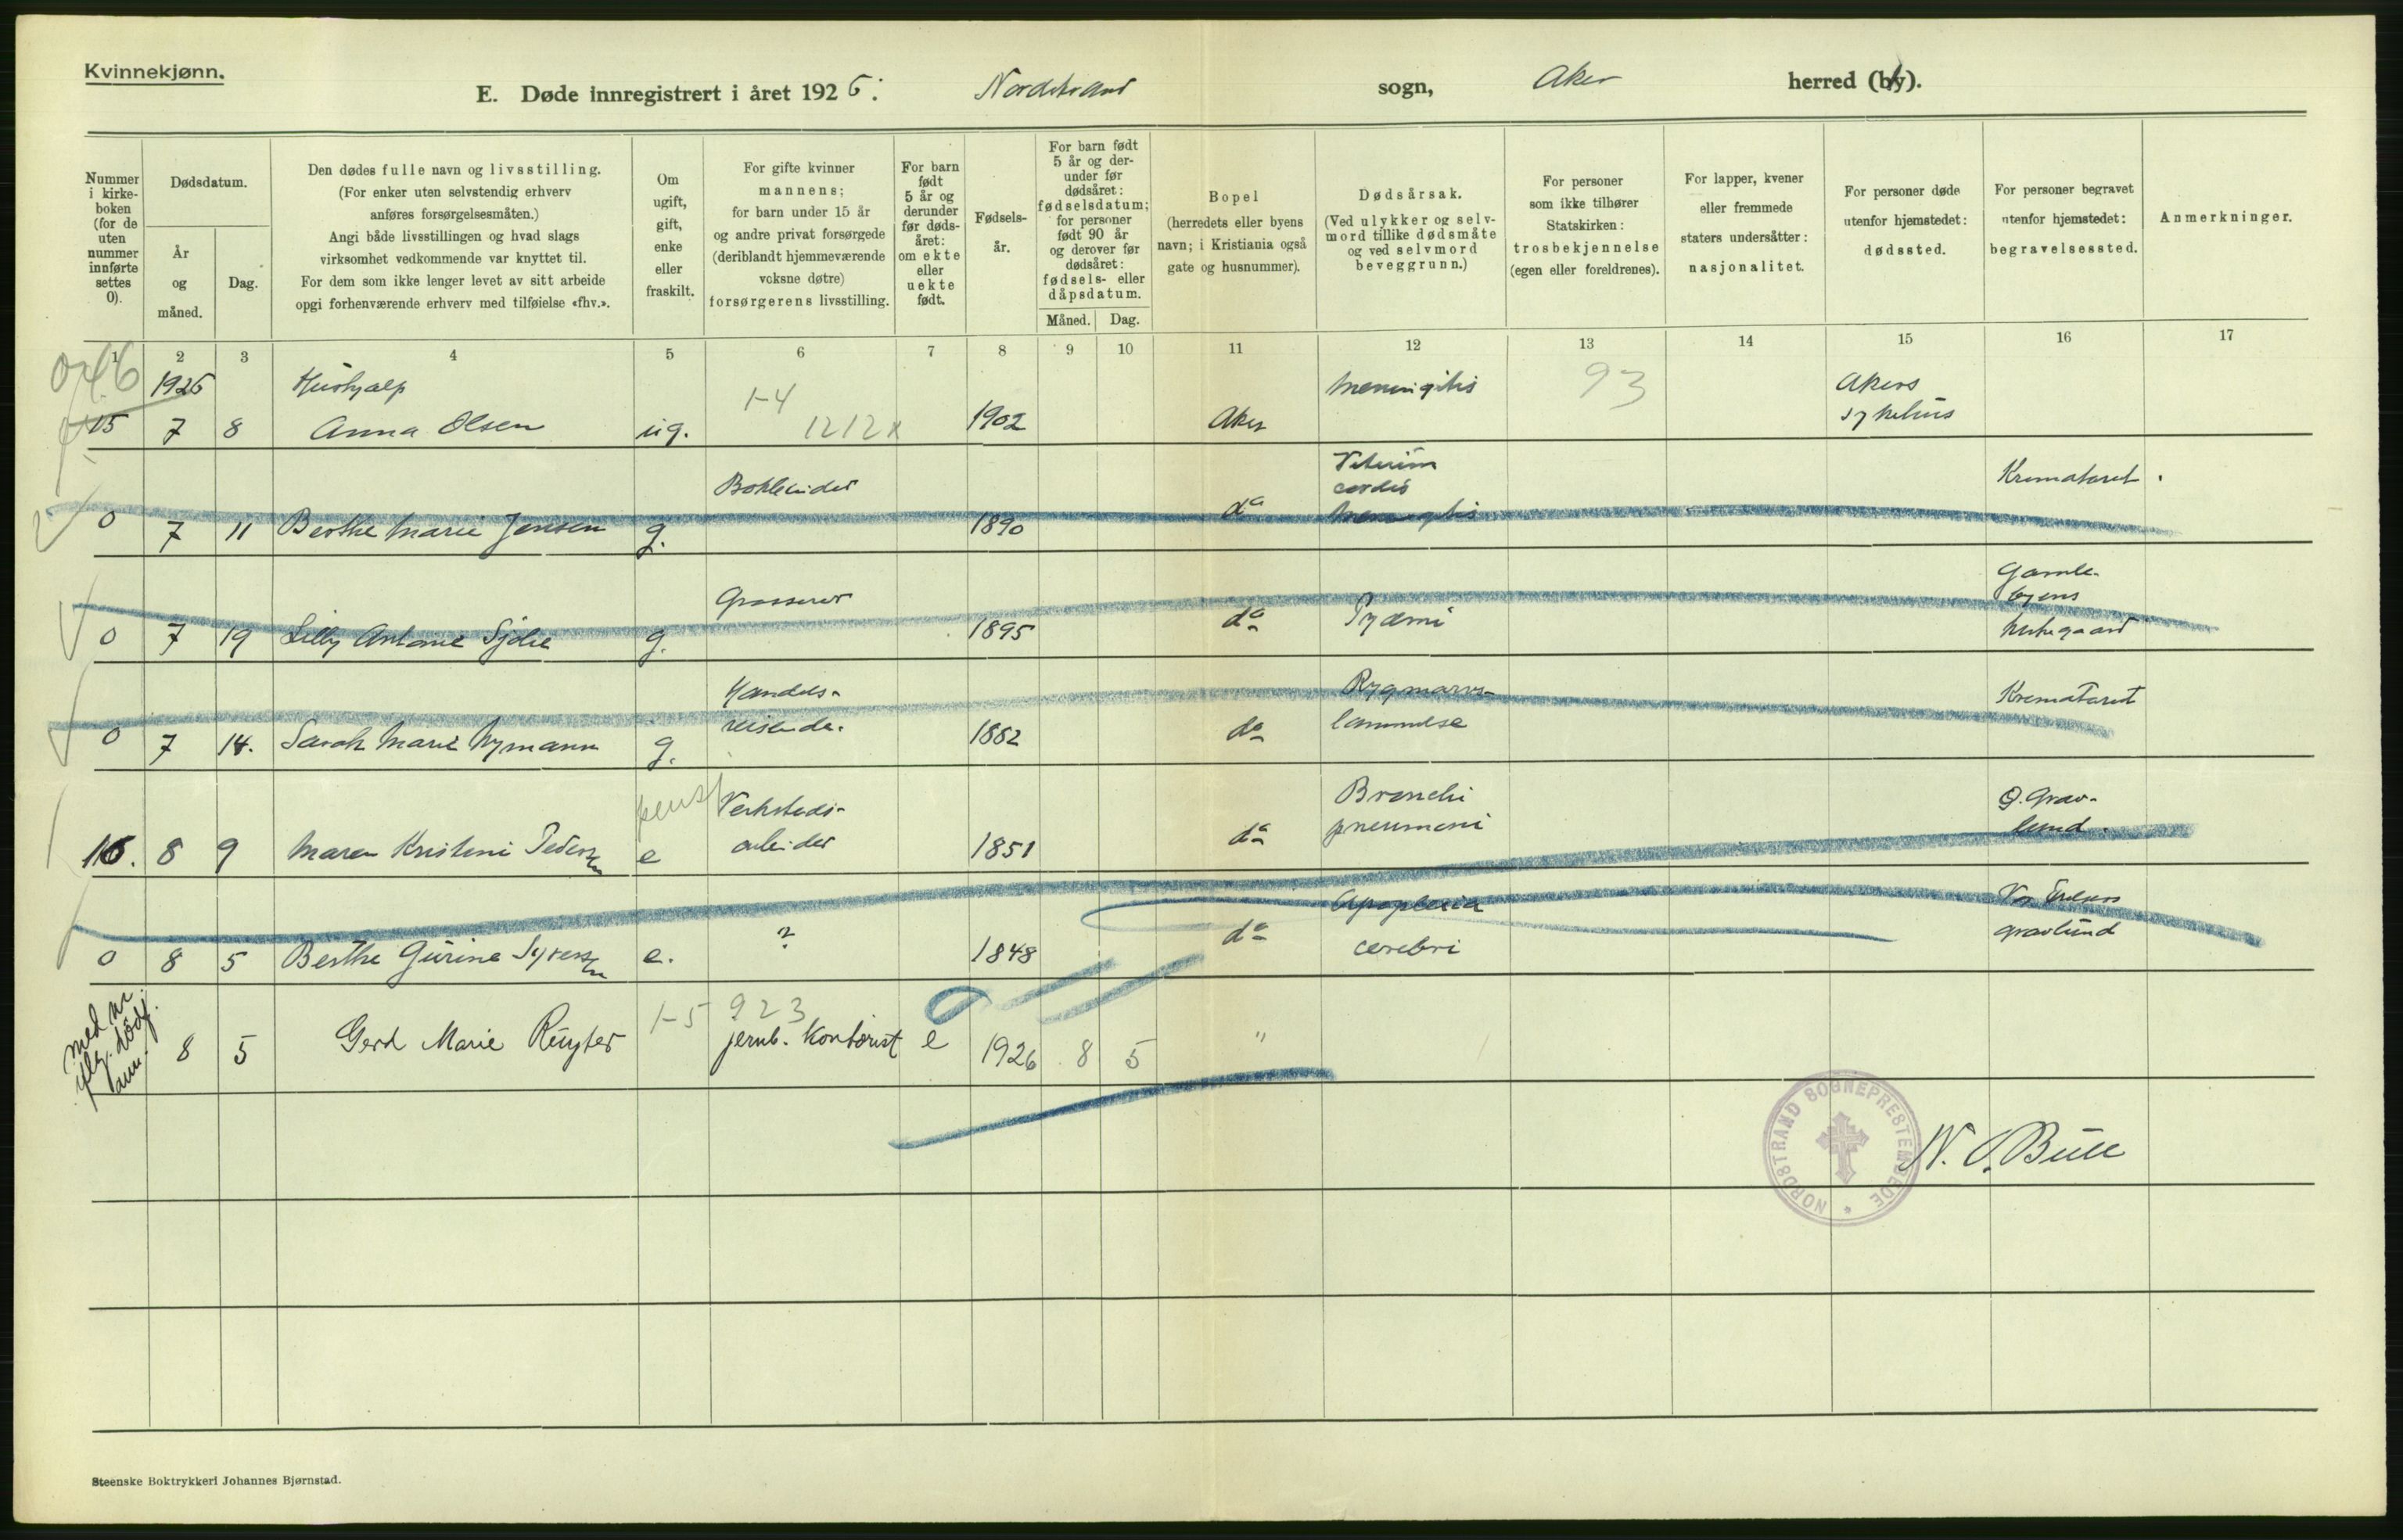 Kvinnekjønn.
E. Døde innregistrert i året 1926. Nordstrand sogn, Aker herred (by).
Nummer i kirkeboken (for de uten nummer innførte settes 0).
Dødsdatum.
År og måned.
Dag.
Den dødes fulle navn og livsstilling.
(For enker uten selvstendig erhverv
anføres forsørgelsesmåten.)
Angi både livsstillingen og hvad slags
virksomhet vedkommende var knyttet til.
For dem som ikke lenger levet av sitt arbeide
opgi forhenværende erhverv med tilføielse «fhv.».
Om ugift, gift, enke eller fraskilt.
For gifte kvinner
mannens;
for barn under 15 år
og andre privat forsørgede
(deriblandt hjemmeværende
voksne døtre)
forsørgerens livsstilling.
For barn født 5 år og derunder før dødsåret: om ekte eller uekte født.
Fødselsår.
For barn født
5 år og derunder før
dødsåret:
fødselsdatum;
for personer
født 90 år
og derover før
dødsåret:
fødsels- eller
dåpsdatum.
Måned. Dag.
Bopel
(herredets eller byens
navn; i Kristiania også
gate og husnummer).
Dødsårsak.
(Ved ulykker og selvmord tillike dødsmåte
og ved selvmord
beveggrunn.)
For personer
som ikke tilhører
Statskirken:
trosbekjennelse
(egen eller foreldrenes).
For lapper, kvener
eller fremmede
staters undersåtter:
nasjonalitet.
For personer døde
utenfor hjemstedet:
dødssted.
For personer begravet
utenfor hjemstedet:
begravelsessted.
Anmerkninger.
1 2 3 4 5 6 7 8 9 10 11 12 13 14 15 16 17
1926 Hushjælp 1-4 Meningitis 93 Akers
15 7 8 Anna Olsen ug. 1212x 1902 Aker sykehus
Vitium
Bokbinder cordis Krematoriet.
0 7 11 Berthe Marie Jensen g. 1890 do Meningitis
Gamle-
Grosserer byens
0 7 19 Lilly Antonie g. 1895 do Pyæmi kirkegaard
Handels- Rygmarvs- Krematoriet
0 7 14. Sarah Marie Nymann g. reisende. 1882 do lammelse
pensj Verksteds- Bronchi Ø. Grav-
16. 8 9 Maren Kristine Pedersen e arbeider 1851 do pneumoni lund.
Apoplexia Vor Frelsers
0 8 5 Berthe Gurine Syversen e. ? 1848 do cerebri gravlund
med nr.
1-5 923
8 5 Gerd Marie Ruyter jernb. kontorist e 1926 8 5 "
NORDSTRAND SOGNEPRESTEMBEDE
N. O. Bull
Steenske Boktrykkeri Johannes Bjørnstad.